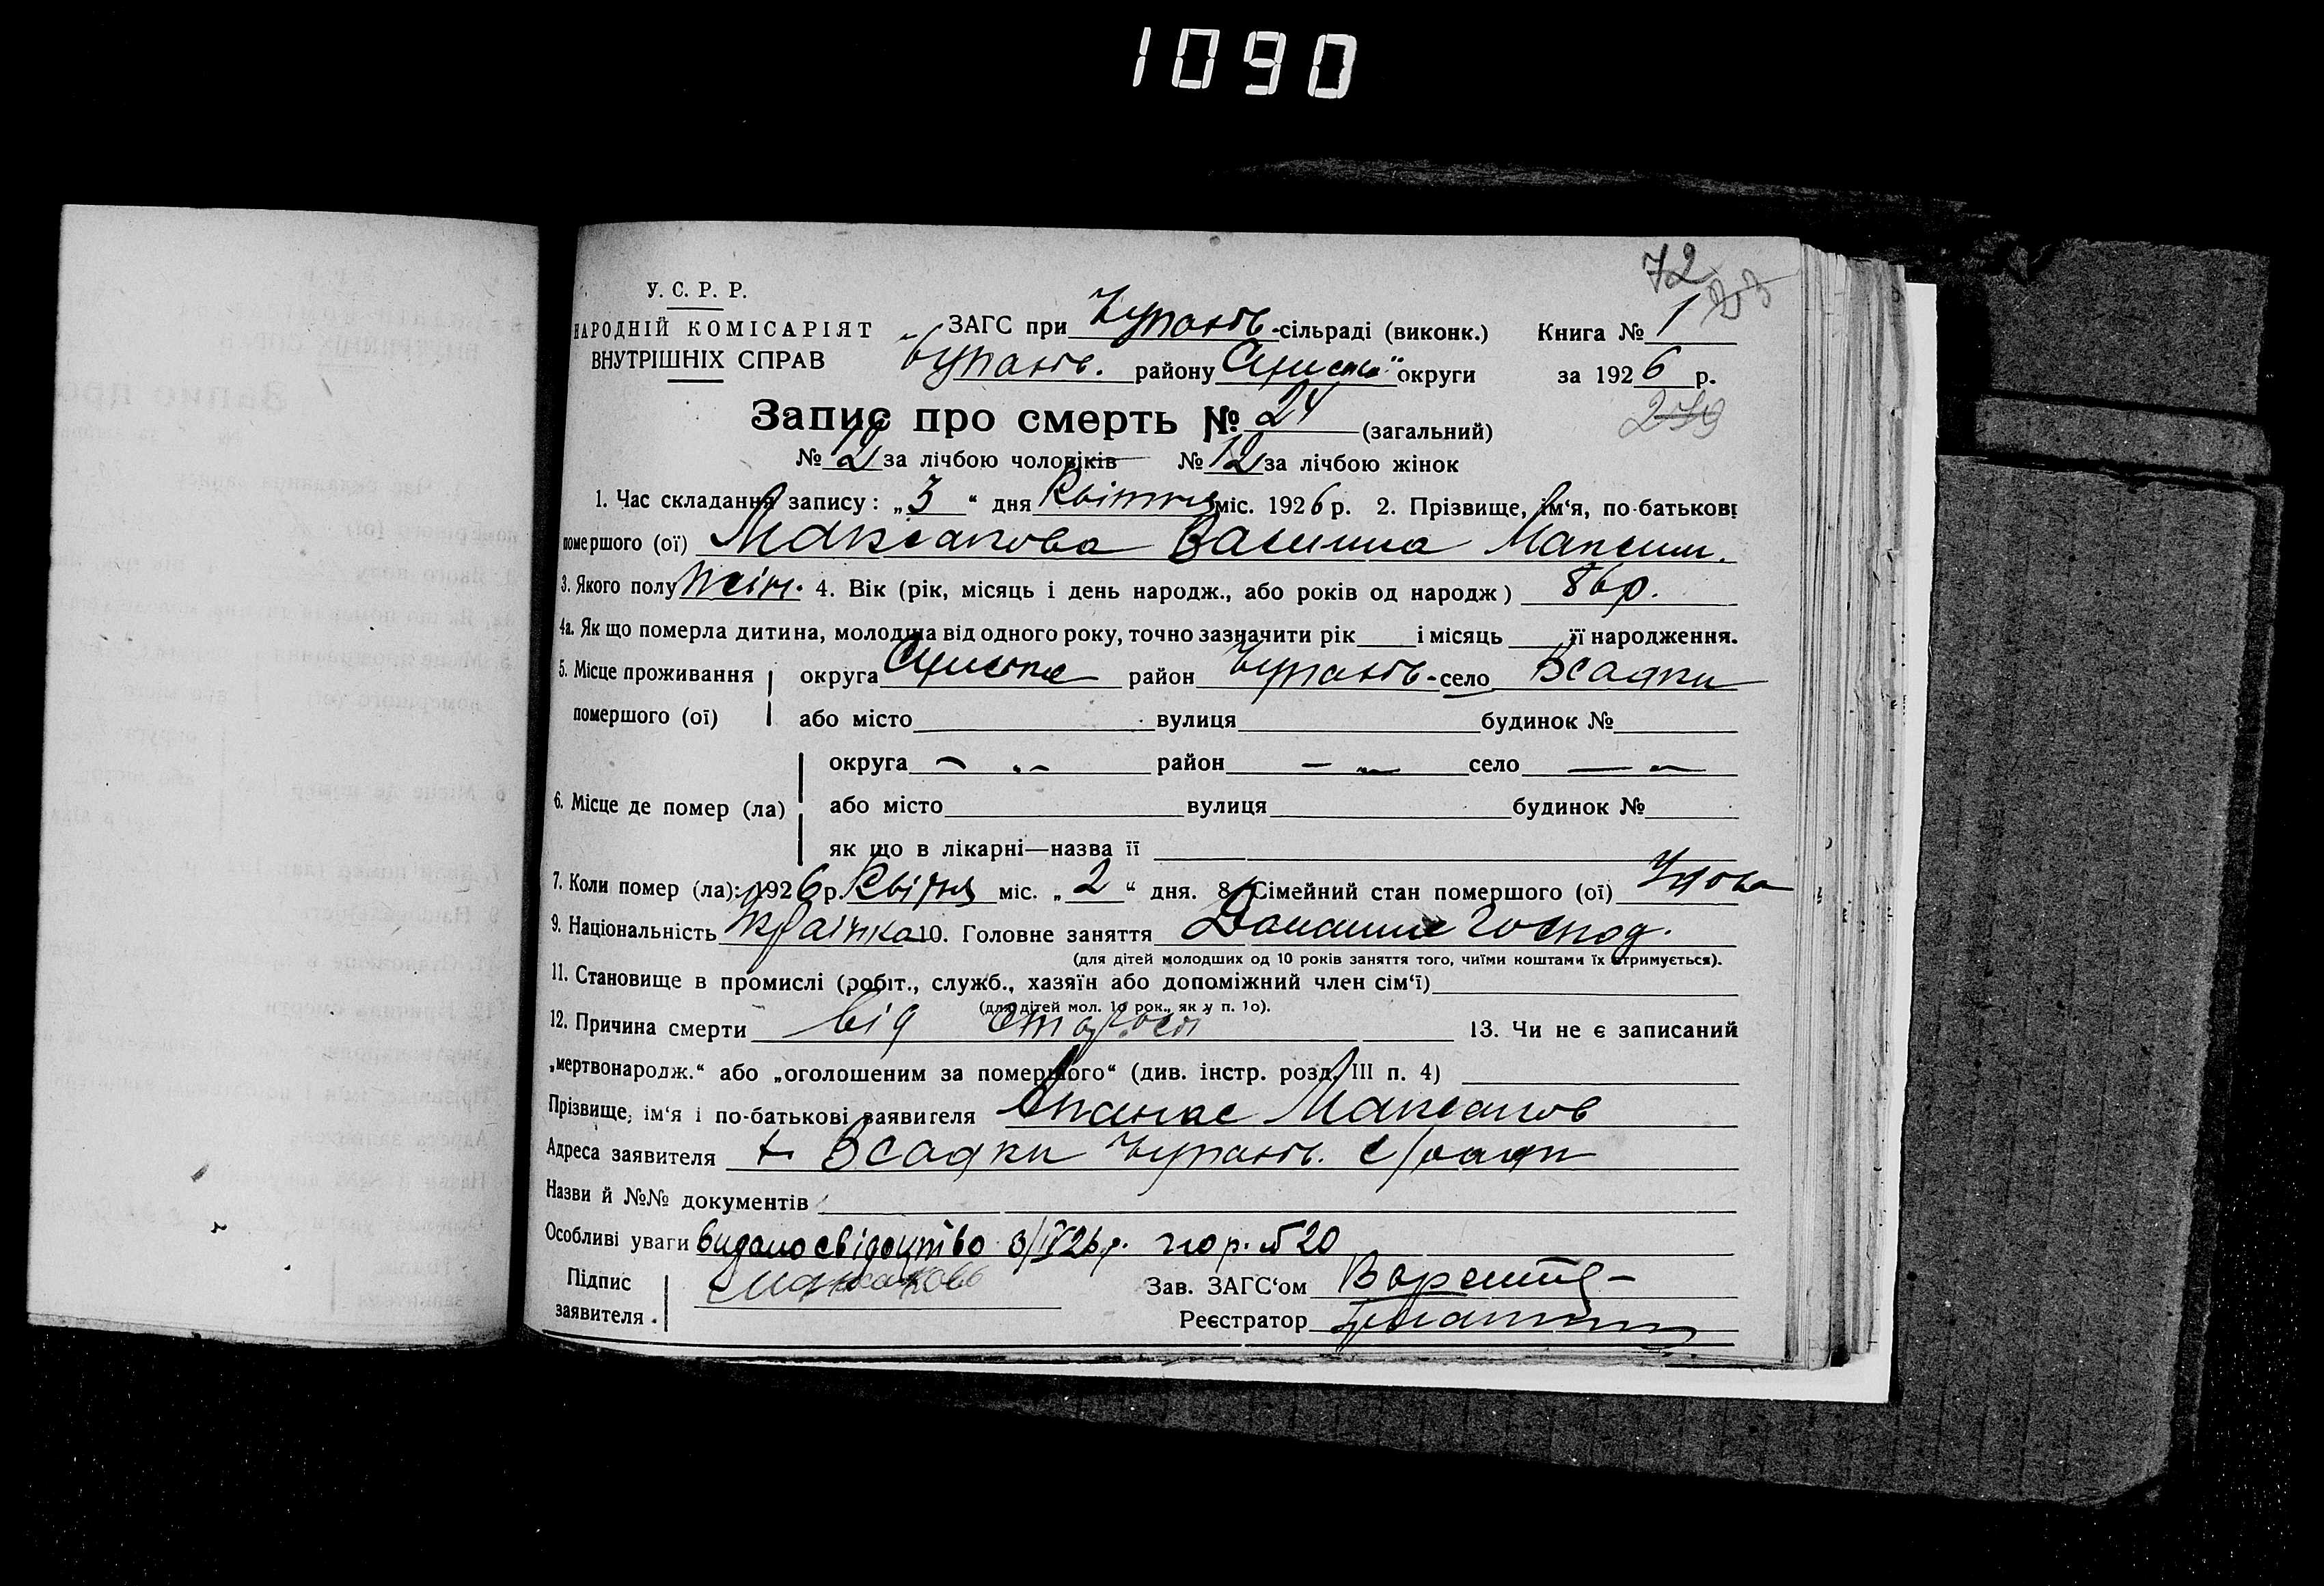 1090
72
У. С. Р. Р.
НАРОДНІЙ КОМІСАРІЯТ
ВНУТРІШНІХ СПРАВ
ЗАГС при Чупахів-сільраді (виконк.) Книга № 1
Чупахів. району округи за 1926 р.
Запис про смерть № 24 (загальний)
279
№ 12 за лічбою чоловіків № 12 за лічбою жінок
1. Час складання запису: „3“ дня Квітня міс. 1926 р. 2. Прізвище, ім‘я, по-батькові
помершого (ої) Максакова Василина Максим.
3. Якого полу жін. 4. Вік (рік, місяць і день народж., або років од народж) 86р.
4а. Як що померла дитина, молодша від одного року, точно зазначити рік і місяць її народження.
5. Місце проживання округа район Чупахів-село Всадки
помершого (ої) або місто вулиця будинок №
округа — „ — район — „ — село — „ —
6. Місце де помер (ла) або місто вулиця будинок №
як що в лікарні—назва її
7. Коли помер (ла): 1926 р. Квітня міс. „2“ дня. 8. Сімейний стан помершого (ої) Удова
9. Національність Українка 10. Головне заняття Домашнє господ.
(для дітей молодших од 10 років заняття того, чиїми коштами їх втримується).
11. Становище в промислі (робіт., служб., хазяїн або допоміжний член сім‘ї)
(для дітей мол. 10 рок., як у п. 10).
12. Причина смерти від старости 13. Чи не є записаний
„мертвонародж.“ або „оголошеним за помершого“ (див. інстр. розд. III п. 4)
Прізвище, ім‘я і по-батькові заявителя Опанас Максаков
Адреса заявителя х. Всадки Чупахів. с/ради
Назви й №№ документів
Особливі уваги видано свідоцтво 3/IV 26 р. № 20
Підпис
заявителя Максаков
Зав. ЗАГС‘ом
Реєстратор